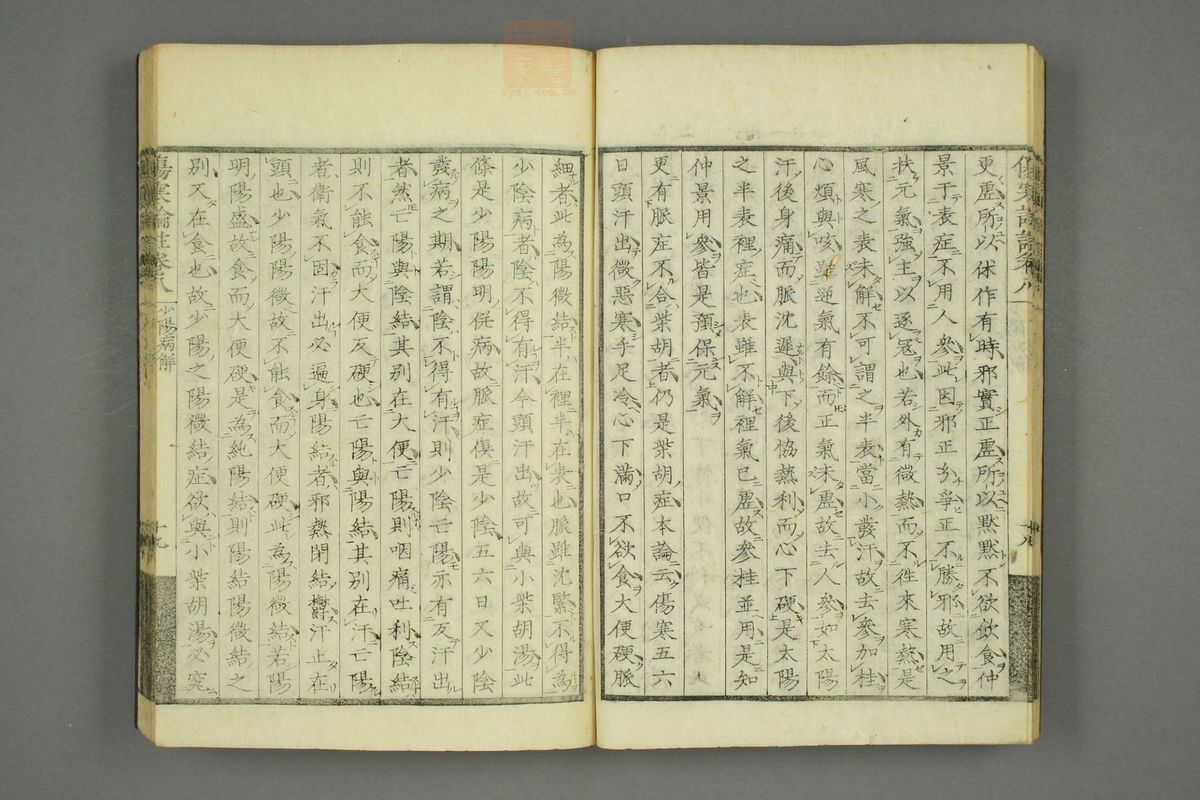 更虛所以休作有時邪實正虛所以默默不欲飲食仲
景于表症不用人參此因邪正分爭正不勝邪故用之
扶元氣強主以逐寇也若外有微熱而不徃來寒熱是
風寒之表未解不可謂之半表當小發汗故去參加桂
心煩與咳雖逆氣有餘而正氣未虛故去人參如太陽
汗後身痛而脈沈遲與下後恊熱利而心下硬是太陽
之半表裡症也表雖不解裡氣已虛故參桂並用是知
仲景用參皆是預保元氣
更有脈症不合柴胡者仍是柴胡症本論云傷寒五六
日頭汗出微惡寒手足冷心下滿口不欲食大便硬脈
傷寒論註卷八
少陽病解
十九
細者此為陽微結半在裡半在表也脈雖沈緊不得為
少陰病者陰不得有汗今頭汗出故可與小柴胡湯此
條是少陽陽明倂病故脈症俱是少陰五六日又少陰
發病之期若謂陰不得有汗則少陰亡陽亦有反汗出
者然亡陽與陰結其別在大便亡陽則咽痛吐利陰結
則不能食而大便反硬也亡陽與陽結其別在汗亡陽
者衛氣不固汗出必遍身陽結者邪熱閉結汗止在
頭也少陽陽微故不能食而大便硬此為陽微結若陽
明陽盛故食而大便硬是為純陽結則陽結陽微結之
別又在食也故少陽之陽微結症欲與小柴胡湯必究